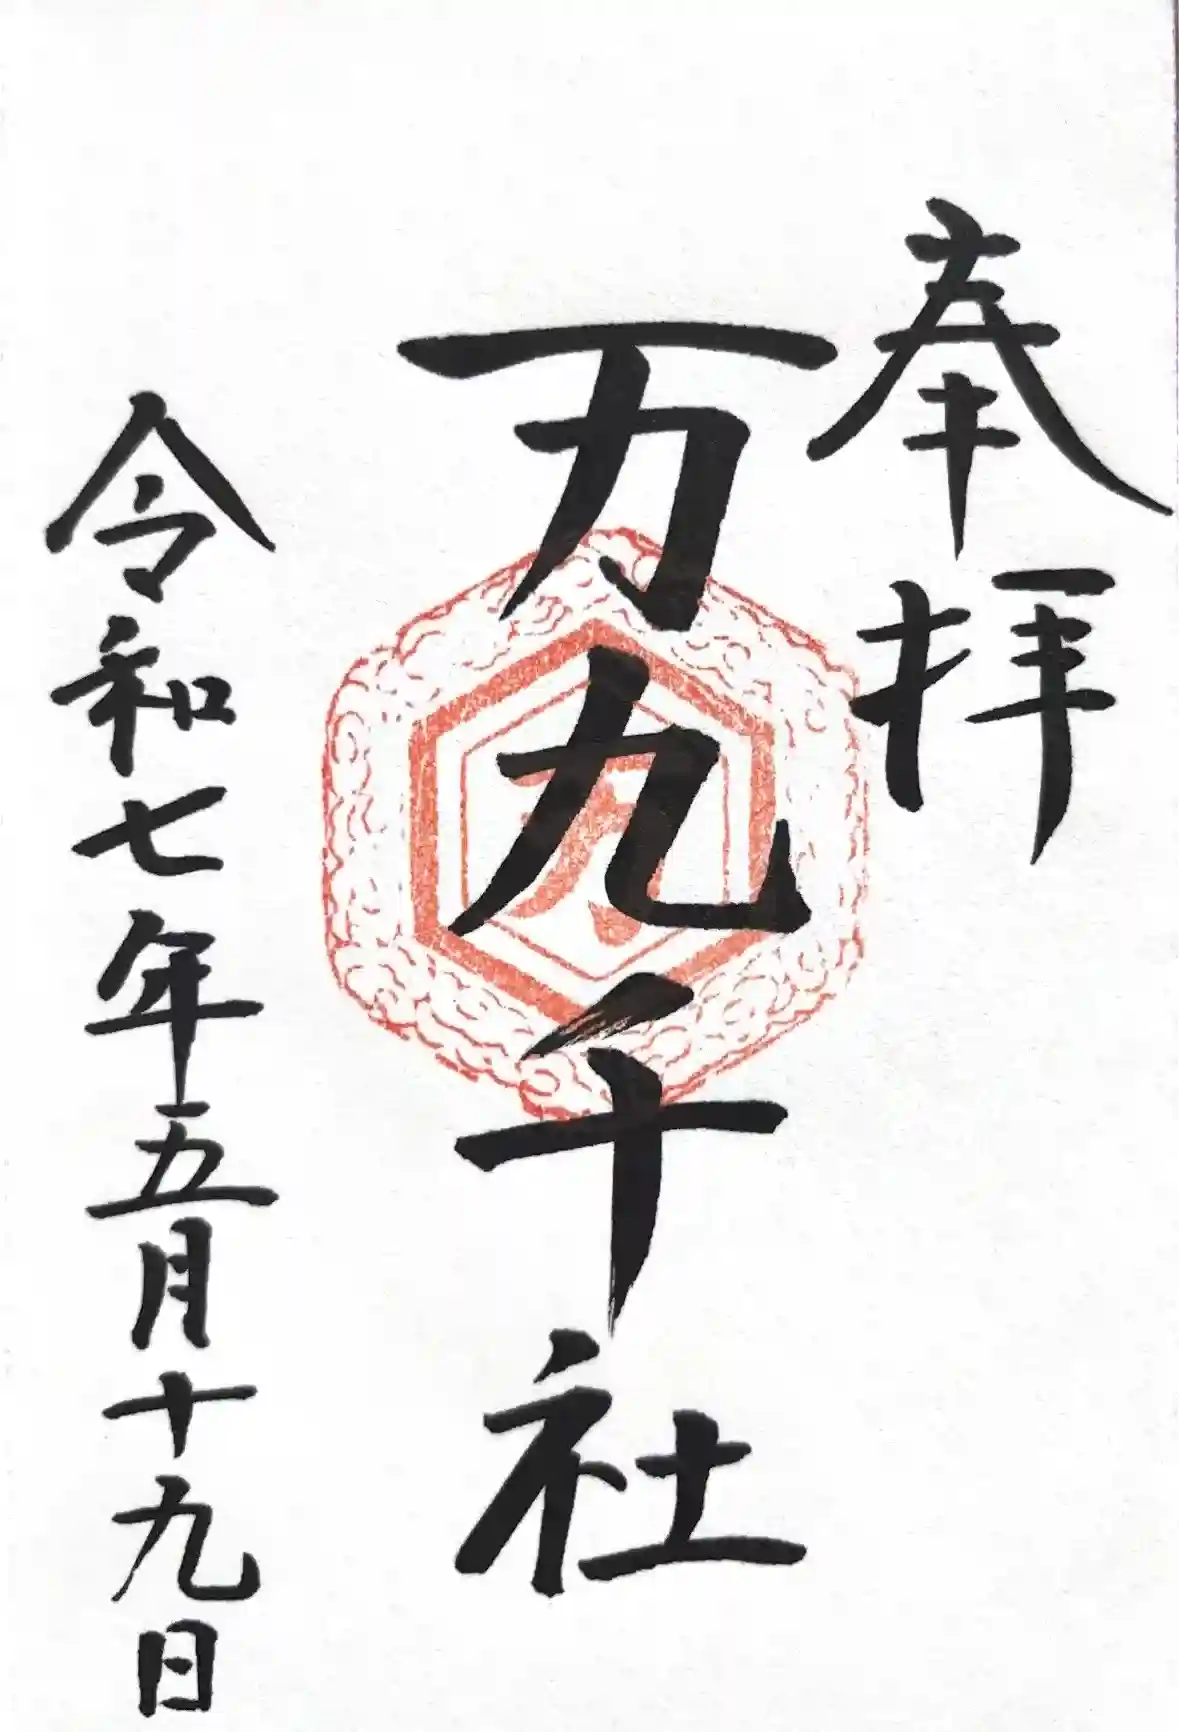 奉拝
万九千社
令和七年五月十九日